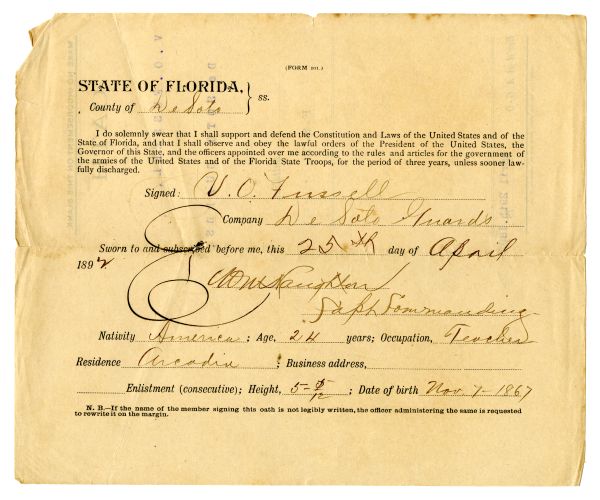 (FORM 101.)
STATE OF FLORIDA, } ss.
County of De Soto
I do solemnly swear that I shall support and defend the Constitution and Laws of the United States and of the
State of Florida, and that I shall observe and obey the lawful orders of the President of the United States, the
Governor of this State, and the officers appointed over me according to the rules and articles for the government of
the armies of the United States and of the Florida State Troops, for the period of three years, unless sooner law-
fully discharged.
Signed: V. O. Fussell
Company De Soto Guards.
Sworn to and subscribed before me, this 25th day of April
1892
Capt Commanding
Nativity America ; Age, 24 years; Occupation, Teacher
Residence Arcadia ; Business address,
Enlistment (consecutive); Height, 5-5/12 ; Date of birth Nov 7- 1867
N. B.—If the name of the member signing this oath is not legibly written, the officer administering the same is requested
to rewrite it on the margin.